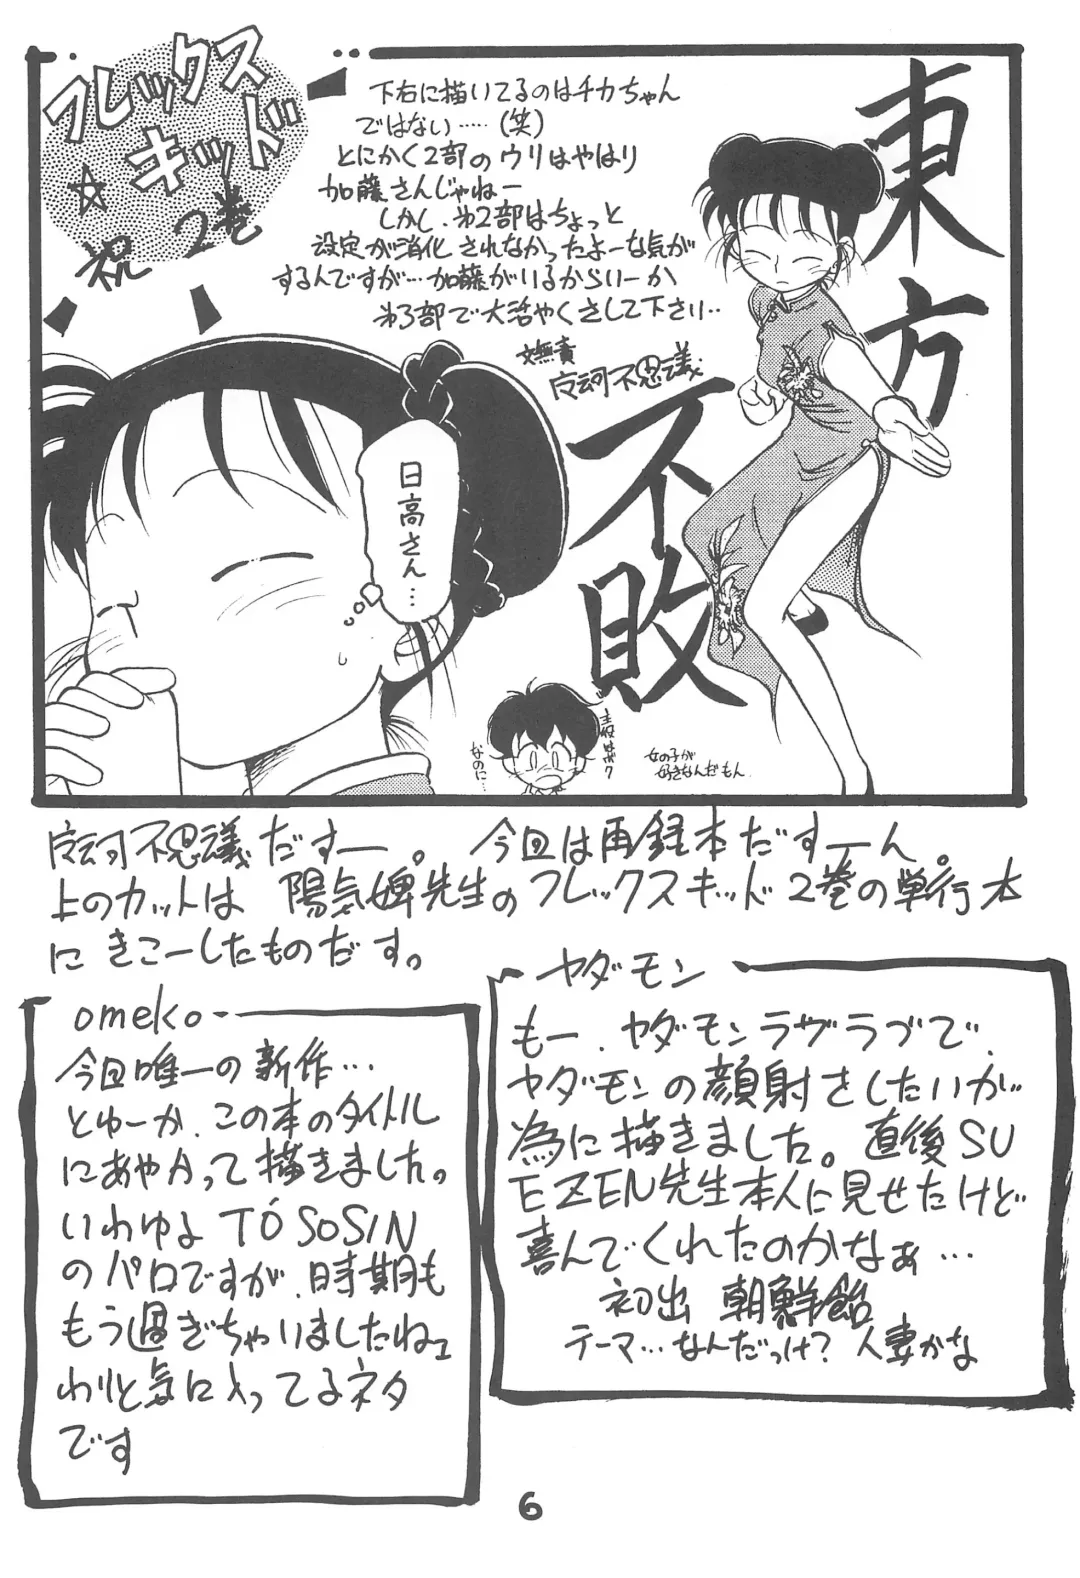 フレックス
キッド
☆
祝 2巻
下右に描いてるのはチカちゃん
ではない……(笑)
とにかく2部のウリはやはり
加藤さんじゃねー
しかし、第2部はちょっと
設定が消化されなかったよーな気が
するんですが…加藤がいるからいーか
第3部で大活やくさして下さい‥
文無責
不思議
東方
不敗
日高さん…
主役はボク
なのに…
女の子が
好きなんだもん
不思議だすー。今回は再録本だすーん。
上のカットは 陽気婢先生のフレックスキッド2巻の単行本
にきこーしたものだす。
omeko
今回唯一の新作…
とゆーか、この本のタイトル
にあやかって描きました。
いわゆるTÓSOSIN
のパロですが、時期も
もう過ぎちゃいましたねェ
わりと気に入ってるネタ
です
ヤダモン
もー、ヤダモンラヴラブで、
ヤダモンの顔射さしたいが
為に描きました。直後SU
EZEN先生本人に見せたけど
喜んでくれたのかなぁ…
初出 朝鮮飴
テーマ…なんだっけ?人妻かな
6